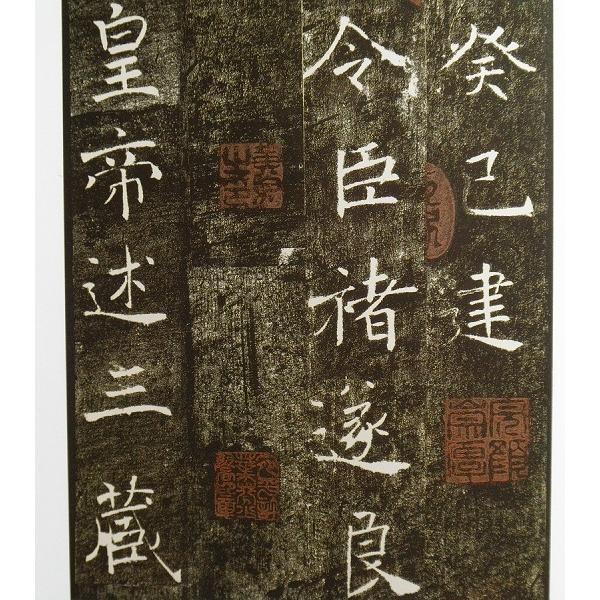 癸已建
令臣褚遂良
皇帝述三藏